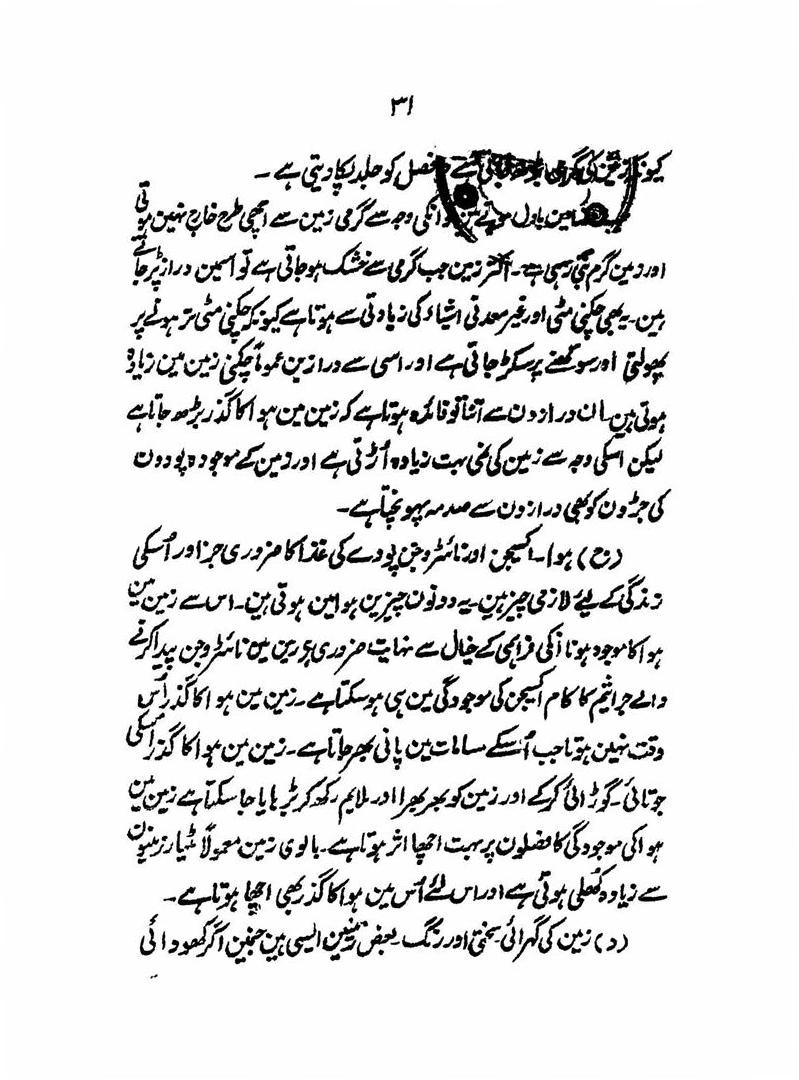 ۳۱
کیونکہ زمین کی گرمی فصل کو جلد پکا دیتی ہے۔
مین بادل ہوتے ہین انکی وجہ سے گرمی زمین سے اچھی طرح خارج نہین ہوتی
اور زمین گرم بنی رہتی ہے۔ اکثر زمین جب گرمی سے خشک ہو جاتی ہے تو اسمین دراز پڑ جاتے
ہین۔ یہ بھی چکنی مٹی اور غیر معدنی اشیاء کی زیادتی سے ہوتا ہے کیونکہ چکنی مٹی تر ہونے پر
پھولتی اور سوکھنے پر سکڑ جاتی ہے اور اسی سے درازین عموماً چکنی زمین مین زیادہ
ہوتی ہین۔ ان درازون سے اتنا تو فائدہ ہوتا ہے کہ زمین مین ہوا کا گذر بڑھ جاتا ہے
لیکن اسکی وجہ سے زمین کی نمی بہت زیادہ اُڑتی ہے اور زمین کے موجودہ پودون
کی جڑون کو بھی درازون سے صدمہ پہونچتا ہے۔
(ج) ہوا۔ اکسیجن اور نائٹروجن پودے کی غذا کا ضروری جز اور اُسکی
زندگی کے لیٔے لازمی چیز ہین۔ یہ دونون چیزین ہوا مین ہوتی ہین۔ اس سے زمین مین
ہوا کا موجود ہونا اُنکی فراہمی کے خیال سے نہایت ضروری ہے زمین مین نائٹروجن پیدا کرنے
والے جراثیم کا کام اکسیجن کی موجودگی مین ہی ہو سکتا ہے۔ زمین مین ہوا کا گذر اُس
وقت نہین ہوتا جب اُسکے مسامات مین پانی بھر جاتا ہے۔ زمین مین ہوا کا گذر اُسکی
جوتائی۔ گوڑائی کرکے اور زمین کو بھربھرا اور ملایم رکھ کر بڑہایا جا سکتا ہے زمین مین
ہوا کی موجودگی کا فصلون پر بہت اچھا اثر ہوتا ہے۔ بالوی زمین معمولاً مٹیار زمینون
سے زیادہ کُھلی ہوتی ہے اور اس لئے اُس مین ہوا کا گذر بھی اچھا ہوتا ہے۔
(د) زمین کی گہرائی۔ سختی اور رنگ۔ بعض زمینین ایسی ہین جنہین اگر کھودوائی